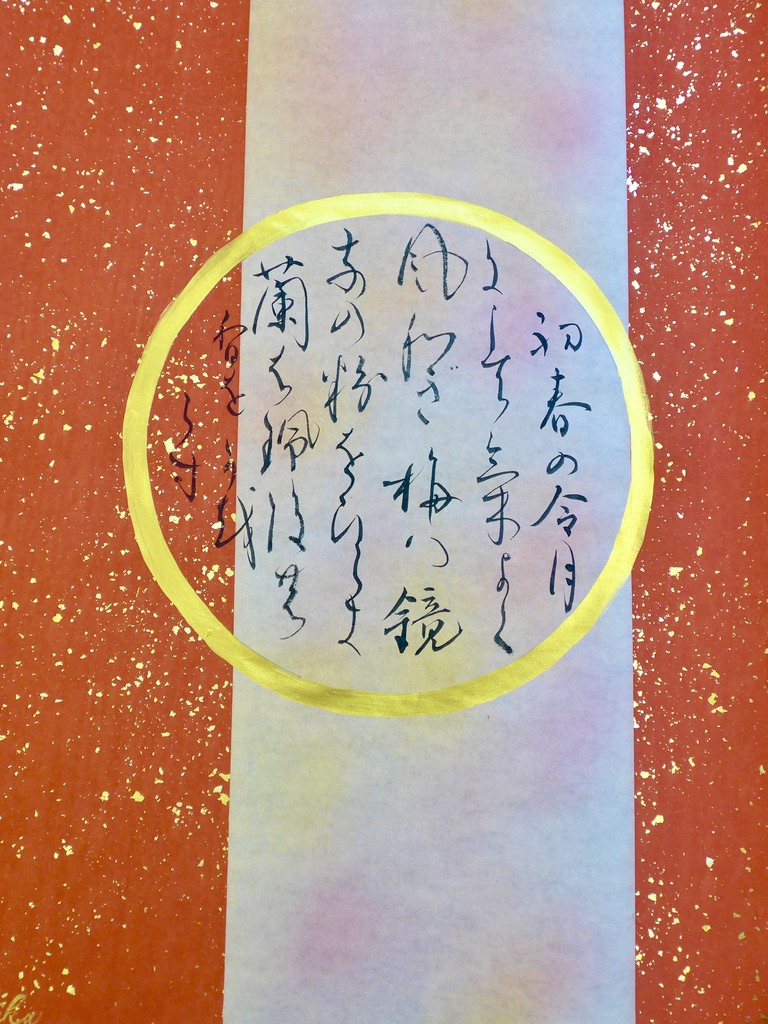 初春の令月
にして氣よく
風和ぎ梅は鏡
前の粉をひらき
蘭は珮後の
香をかを
らす